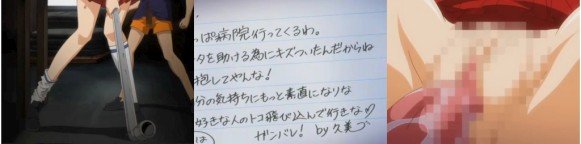 ぱ病院行ってくるわ。
タを助ける為にキズついたんだからね
抱してやんな!
分の気持ちにもっと素直になりな
好きな人のトコ飛び込んで行きな♡
ガンバレ! by 久美
は